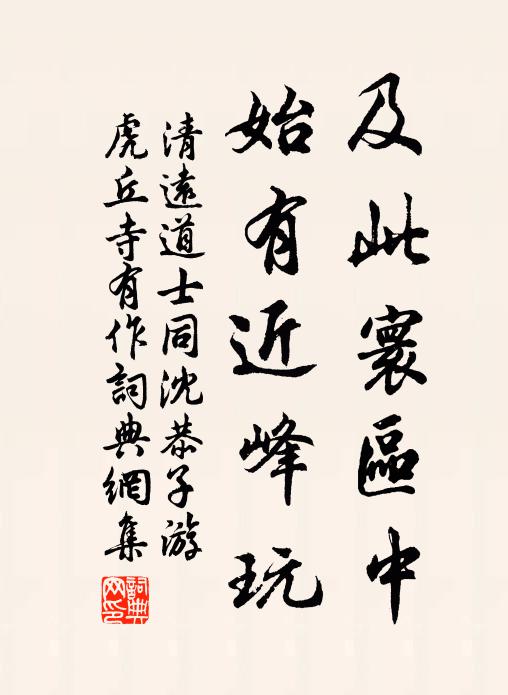 及此寰區中
始有近峰玩
清遠道士同沈恭子游
虎丘寺有作詞典網集
詞典網印